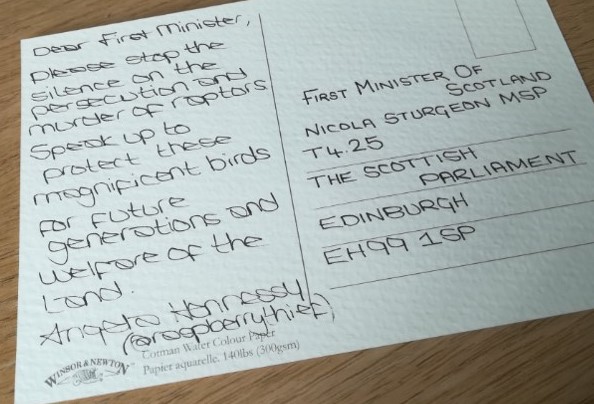 Dear First Minister,
please stop the
silence on the
persecution and
murder of raptors
Speak up to
protect these
magnificent birds
for future
generations and
welfare of the
land.
Angela Hennessy
(@raspberrythief)
WINSOR & NEWTON™
Cotman Water Colour Paper
Papier aquarelle. 140lbs (300gsm)
FIRST MINISTER OF
SCOTLAND
NICOLA STURGEON MSP
T4.25
THE SCOTTISH
PARLIAMENT
EDINBURGH
EH99 1SP